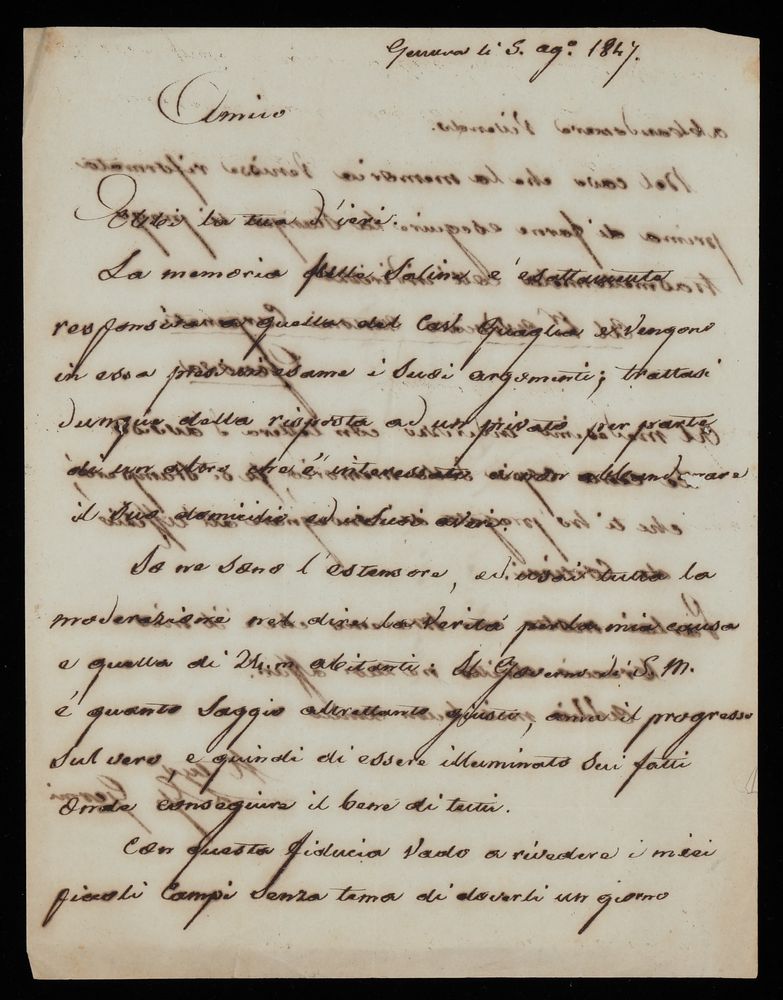 Genova li 5. ag.º 1847.
Amico
Ebbi la tua d'ieri.
La memoria sulle Saline è esattamente
responsiva a quella del Cast Quaglia e vengono
in essa presi in esame i suoi argomenti; trattasi
dunque della risposta ad un privato per parte
di un altro che è interessato a non abbandonare
il suo domicilio ed i suoi averi.
Io ne sono l'estensore, ed usai tutta la
moderazione nel dire la verità per la mia causa
e quella di 24.m abitanti. Il Governo di S. M.
è quanto saggio altrettanto giusto, ama il progresso
sul vero, e quindi di essere illuminato sui fatti
onde conseguire il bene di tutti.
Con questa fiducia vado a rivedere i miei
piccoli Campi senza tema di doverli un giorno